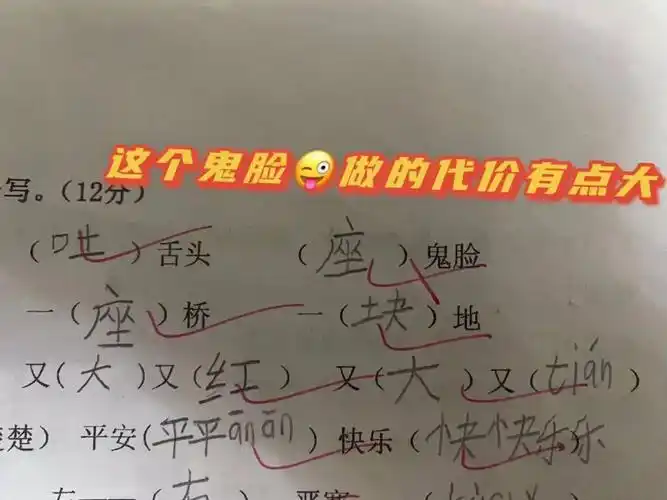 这个鬼脸😜做的代价有点大
写。(12分)
(吐)舌头 (座)鬼脸
一(座)桥 一(块)地
又(大)又(红) 又(大)又(tián)
楚) 平安(平平ānān) 快乐(快快乐乐)